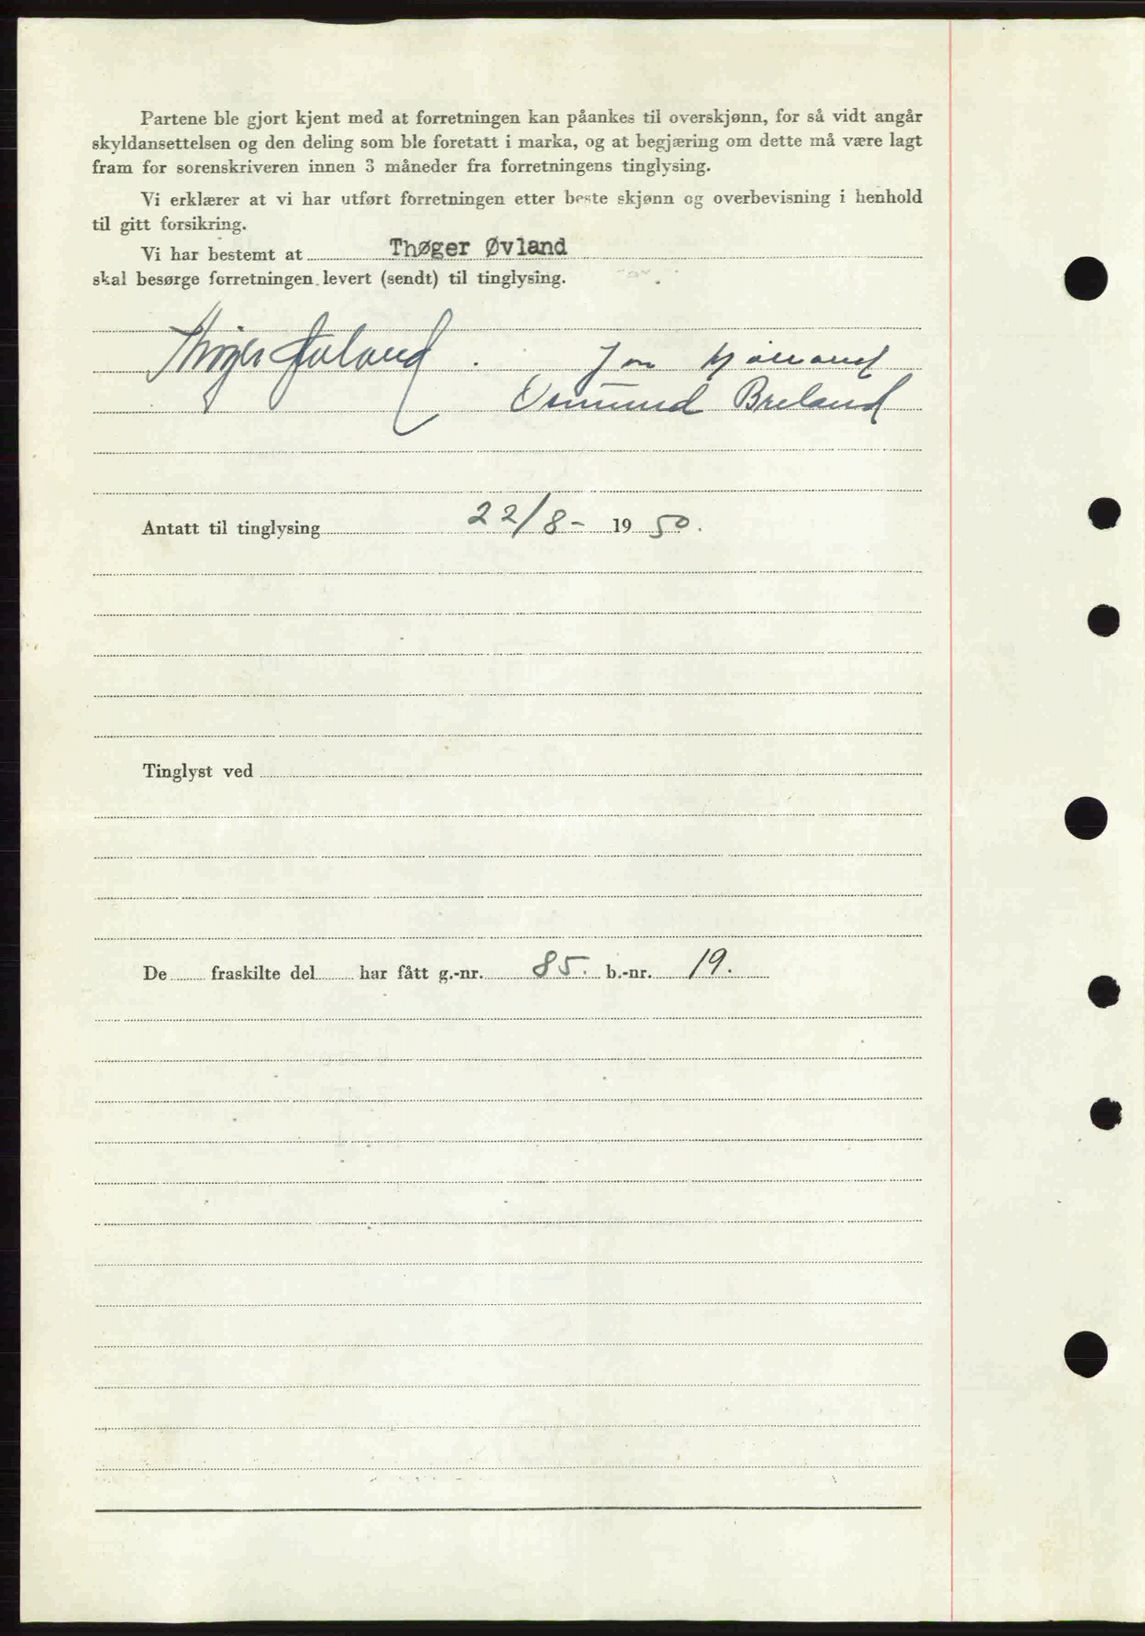 Partene ble gjort kjent med at forretningen kan påankes til overskjønn, for så vidt angår
skyldansettelsen og den deling som ble foretatt i marka, og at begjæring om dette må være lagt
fram for sorenskriveren innen 3 måneder fra forretningens tinglysing.
Vi erklærer at vi har utført forretningen etter beste skjønn og overbevisning i henhold
til gitt forsikring.
Vi har bestemt at Thøger Øvland
skal besørge forretningen levert (sendt) til tinglysing.
Thøger Øvland. Jon
Osmund Breland
Antatt til tinglysing 22/8- 1950.
Tinglyst ved
De fraskilte del har fått g.-nr. 85. b.-nr. 19.